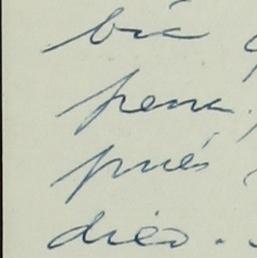 bié
pena.
pués
dieo.